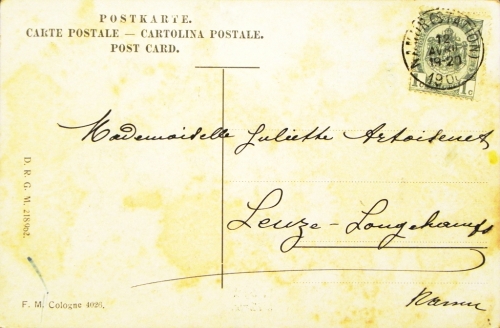 POSTKARTE.
CARTE POSTALE — CARTOLINA POSTALE.
POST CARD.
NAMUR (STATION)
18
AVRIL
19-20
1c
Mademoiselle Juliette Artoisenet
Leuze-Longchamps
Namur
D. R. G. M. 218962.
F. M. Cologne 4026.